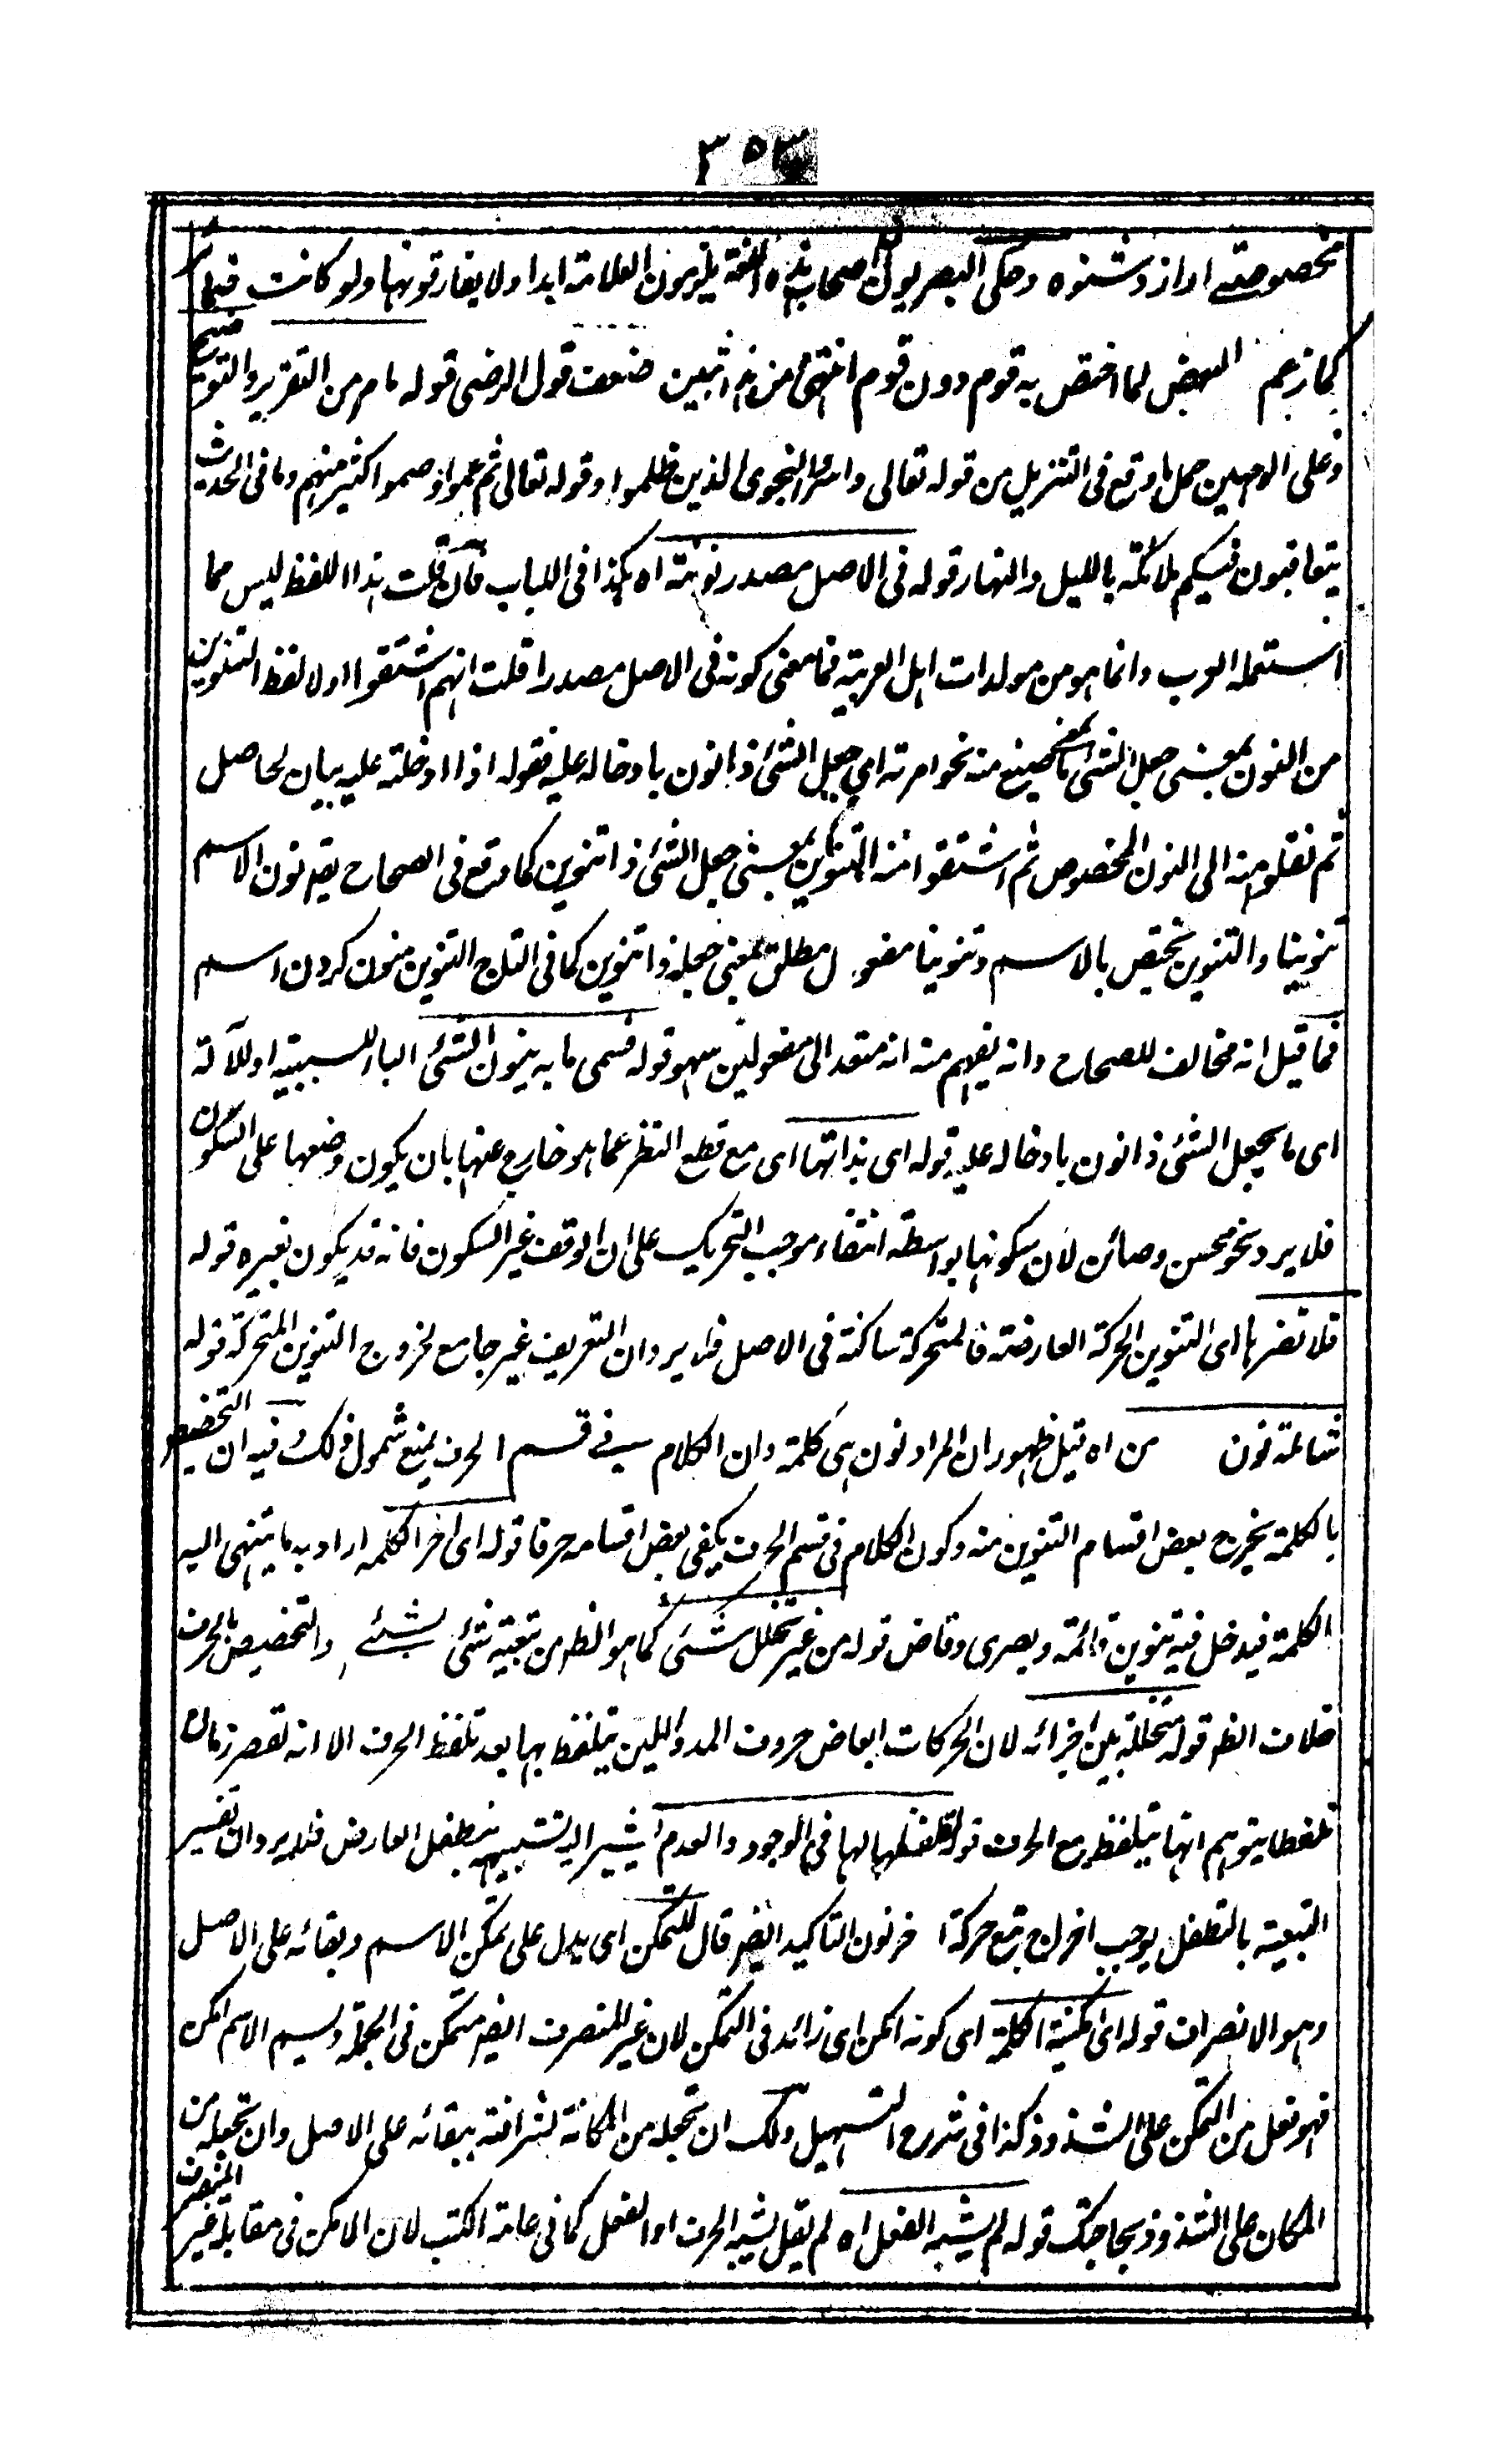 ٣٥٣
بخصوصه اراذ وشنوه وحكى البصريون ان اصحاب هذه اللغة يلزمون العلامة ابدا ولا يفارقونها ولو كانت ضمائر
كما زعم البعض لما اختص به قوم دون قوم انتهى من هذا تبين ضعف قول الرضى قوله ما مر من التقرير والتوضيح
وعلى الوجهين حمل ما وقع فى التنزيل من قوله تعالى واسروا النجوى الذين ظلموا وقوله تعالى ثم عموا وصموا اكثير منهم وما فى الحديث
يتعاقبون فيكم ملائكة بالليل والنهار قوله فى الاصل مصدر نونته اه هكذا فى اللباب فان قلت هذا اللفظ ليس مما
استعمله العرب وانما هو من مولدات اهل العربية فما معنى كونه فى الاصل مصدرا قلت انهم اشتقوا اولا لفظ التنوين
من النون بمعنى جعل الشئ بما صيغ منه نحو امرته اي جعل الشئ ذا نون بادخاله عليه فقوله اذا ادخلته عليه بيان لحاصل
ثم نقلوا منه الى النون المخصوص ثم اشتقوا منه التنوين بمعنى جعل الشئ ذا تنوين كما وقع فى الصحاح يقه نون الاسم
تنوينا والتنوين يختص بالاسم وتنوينا مفعول مطلق بمعنى جعله ذا تنوين كما فى التاج التنوين منون كردن اسم
فما قيل انه مخالف للصحاح وانه يفهم منه انه متعد الى مفعولين سهو قوله فسمى ما به ينون الشئ الباء للسببية او للآلة
اى ما يجعل الشئ ذا نون بادخاله عليه قوله اى بذاتها اى مع قطع النظر عما هو خارج عنها بان يكون وضعها على السكون
فلا يرد نحو محسن وصائن لان سكونها بواسطة انتفاء موجب التحريك على ان الوقف غير السكون فانه قد يكون بغيره قوله
فلا تضرها اى التنوين الحركة العارضة فالمتحركة ساكنة فى الاصل فلا يرد ان التعريف غير جامع لخروج التنوين المتحركة قوله
شاملة نون من اه قيل ظهور ان المراد نون هى كلمة وان الكلام فى قسم الحرف يمنع شمول ذلك وفيه ان التخصيص
بالكلمة يخرج بعض اقسام التنوين منه وكون الكلام فى قسم الحرف يكفى بعض اقسامه حرفا قوله اى اخر الكلمة اراد به ما ينتهى اليه
الكلمة فيدخل فيه تنوين قائمة وبصرى وقاض قوله من غير تخلل شئ كما هو الظ من تبعية شئ بشئ والتخصيص بالحرف
خلاف الظ قوله متخللة بين اجزائه لان الحركات ابعاض حروف المد واللين يتلفظ بها بعد تلفظ الحرف الا انه لقصر زمان
تلفظها يتوهم انها يتلفظ مع الحرف قوله لتطفلها لها فى الوجود والعدم يشير اليه تشبيهه بتطفل العارض فلا يرد ان تفسير
التبعية بالتطفل يوجب اخراج تتبع حركة اخر نون التاكيد ايضا قال للتمكن اى يدل على تمكن الاسم وبقائه على الاصل
وهو الانصراف قوله اى امكنية الكلمة اى كونه امكن اى زائد فى التمكن لان غير المنصرف ايضا متمكن فى الجملة ويسمى الاسم امكن
فهو افعل من التمكن على الشذوذ كذا فى شرح التسهيل ولك ان تجعله من المكانة لشرافته ببقائه على الاصل وان تجعله من
المكان على الشذوذ قوله لم يشبه الفعل اه لم يقل يشبه الحرف او الفعل كما فى عامة الكتب لان الامكن فى مقابلة غير المنصرف